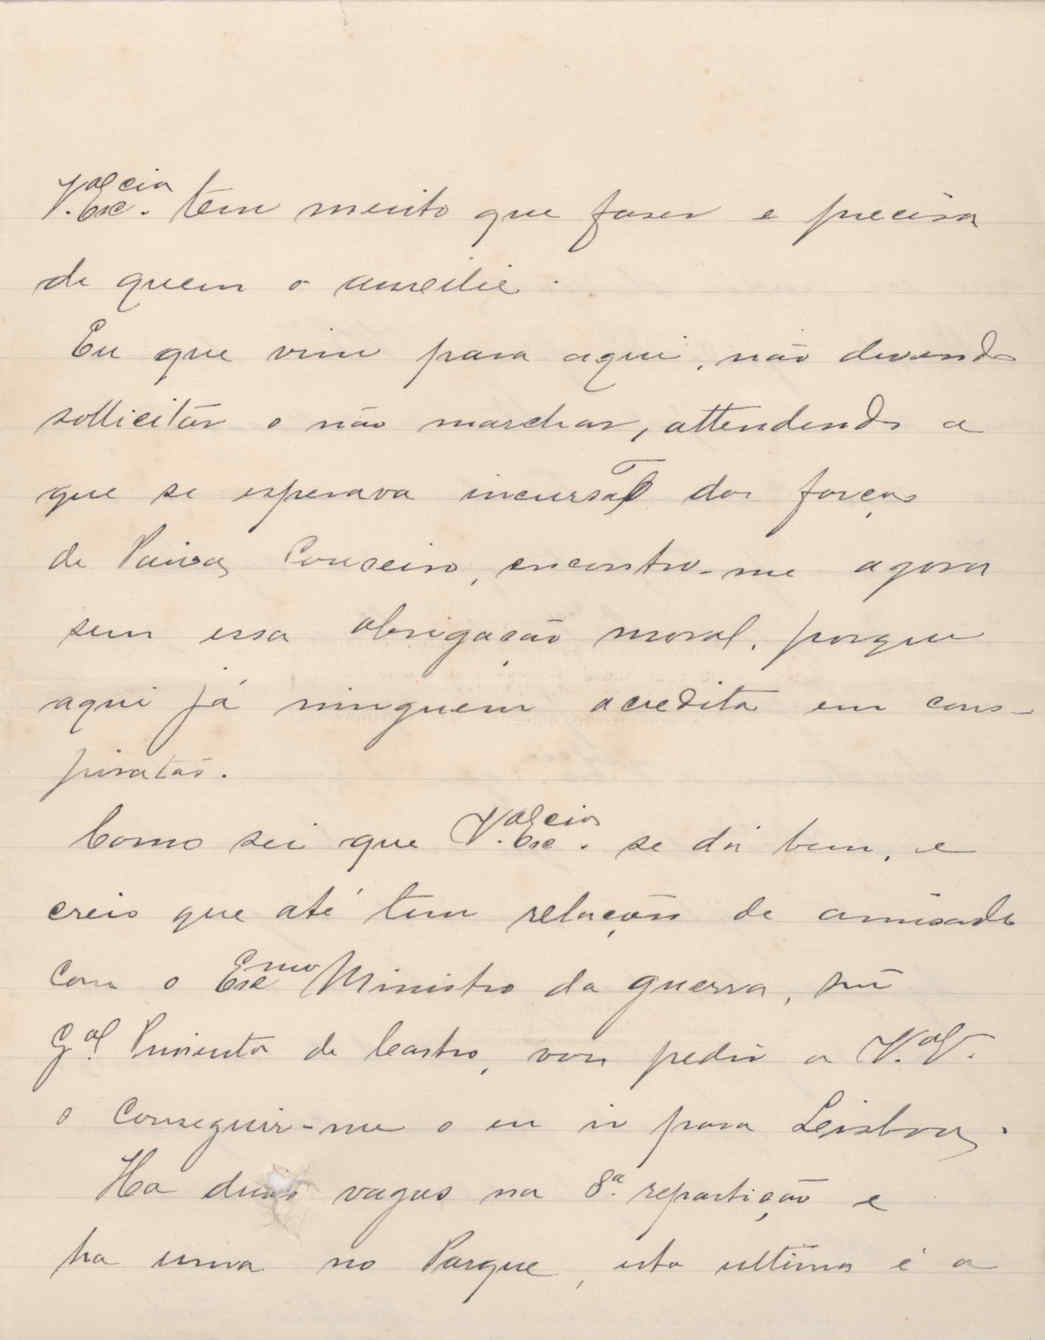 V.ª Excia. tem muito que faser e precisa
de quem o auxilie.
Eu que vim para aqui, não devendo
sollicitar o não marchar, attendendo a
que se esperava incursão das forças
de Paiva Couceiro, encontro-me agora
sem essa obrigação moral, porque
aqui já ninguem acredita em cons-
piratas.
Como sei que V.ª Excia. se dá bem, e
creio que até tem relações de amisade
com o Exmo Ministro da guerra, snr
Gal. Pimenta de Castro, vou pedir a V.ª V.
o conseguir-me o eu ir para Lisboa.
Ha duas vagas na 8.ª repartição e
ha uma no Parque, esta ultima é a